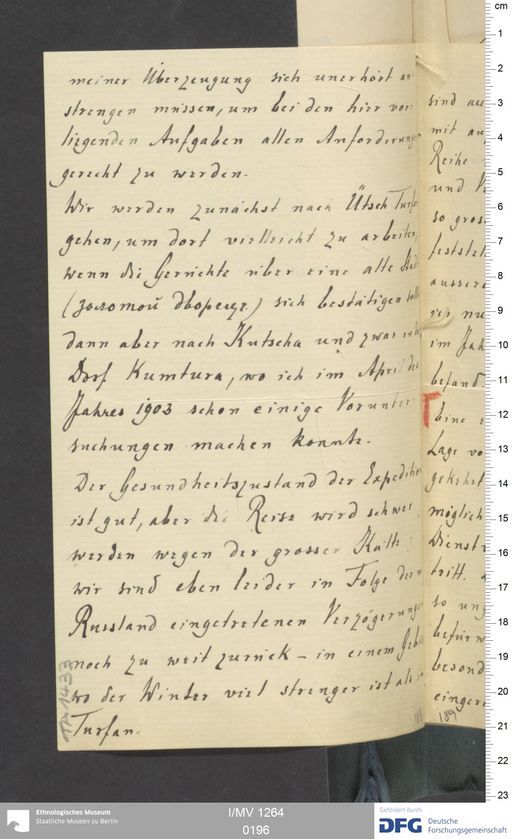 meiner Überzeugung sich unerhört an-
strengen müssen, um bei den hier vor-
liegenden Aufgaben allen Anforderungen
gerecht zu werden.
Wir werden zunächst nach Ütsch Turfan
gehen, um dort vielleicht zu arbeiten,
wenn die Gerüchte über eine alte Stadt
(золотой дворец) sich bestätigen
dann aber nach Kutscha und zwar
Dorf Kumtura, wo ich im April des
Jahres 1903 schon einige Vorunter-
suchungen machen konnte.
Der Gesundheitszustand der Expedition
ist gut, aber die Reise wird schwer
werden wegen der grossen Kälte:
wir sind eben leider in Folge der
Russland eingetretenen Verzögerungen
noch zu weit zurück – in einem Gebiet
wo der Winter viel strenger ist als in
Turfan.
TA 1433
sind
mit
Reihe
und
so gros
feststel
ausser
ich nu
im Jah
befand
Eine
Lage vo
gekehrt
möglich
Dienst
tritt.
so ung
befürw
besond
eingere
189
cm
1
2
3
4
5
6
7
8
9
10
11
12
13
14
15
16
17
18
19
20
21
22
23
Ethnologisches Museum
Staatliche Museen zu Berlin
I/MV 1264
0196
Gefördert durch
DFG Deutsche
Forschungsgemeinschaft